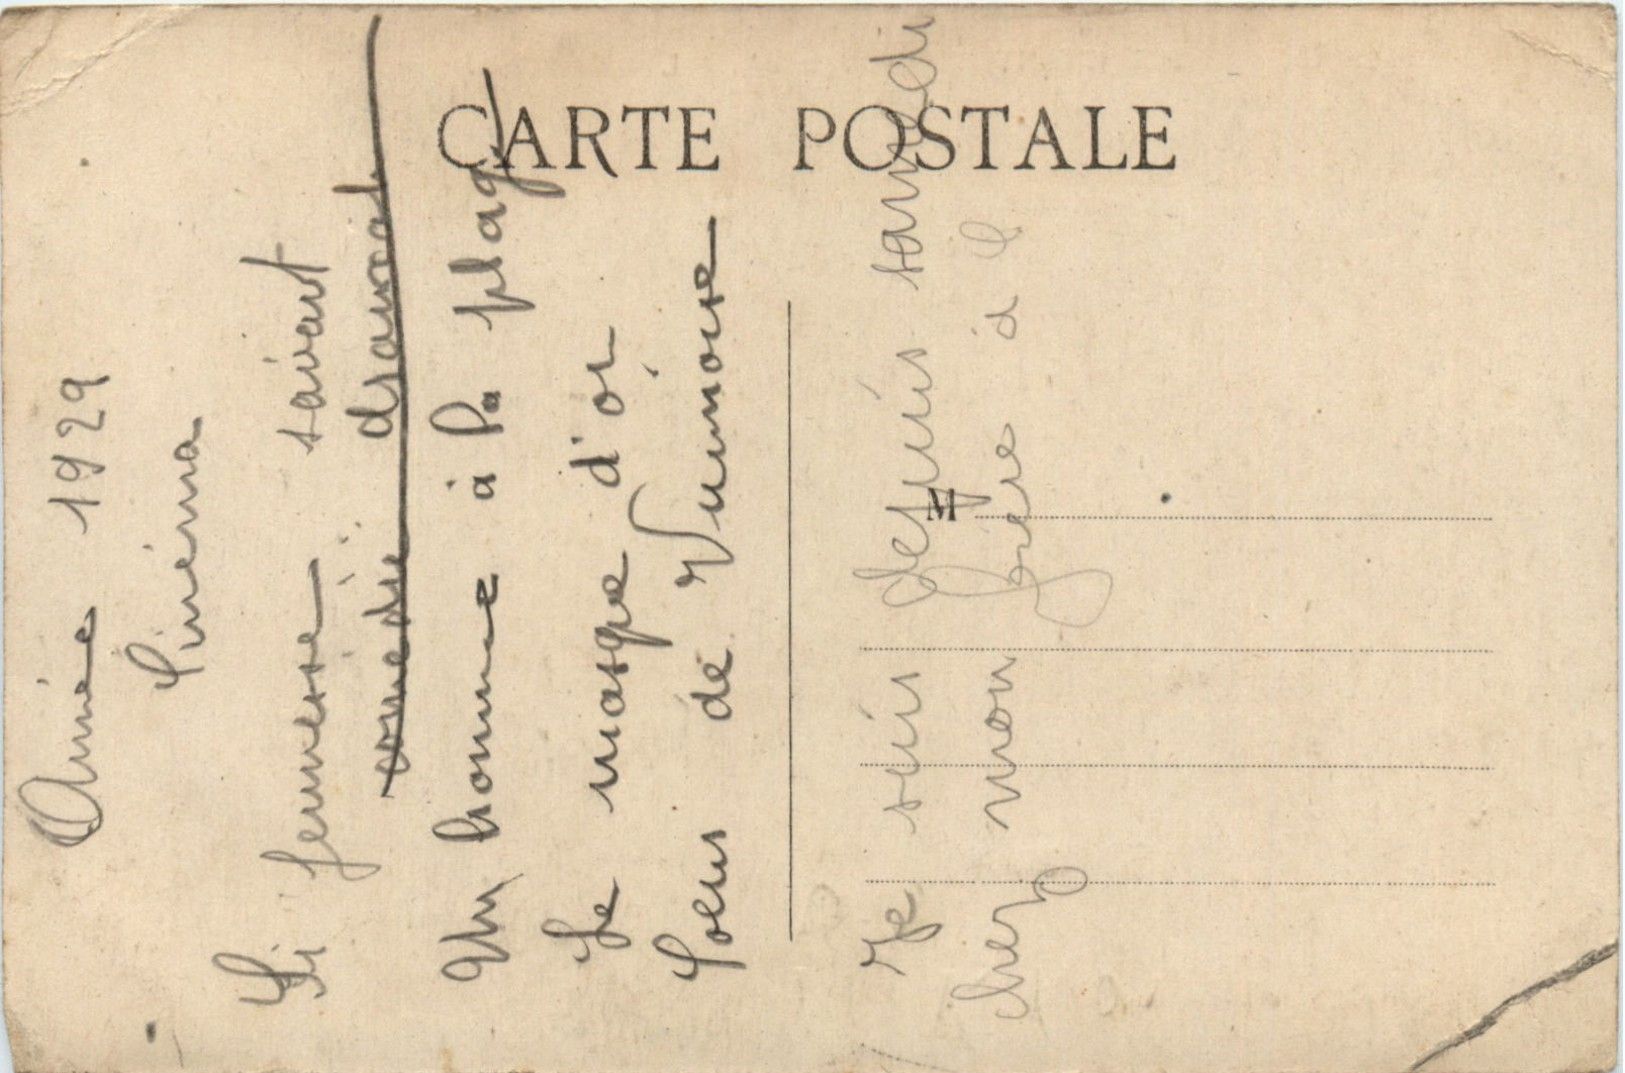 CARTE POSTALE
M
Année 1929
Cinéma
Si jeunesse savait
comédie dramat
Un homme à la plage
Le masque d'or
Soeur de
Je suis depuis samedi
chez mon frère à